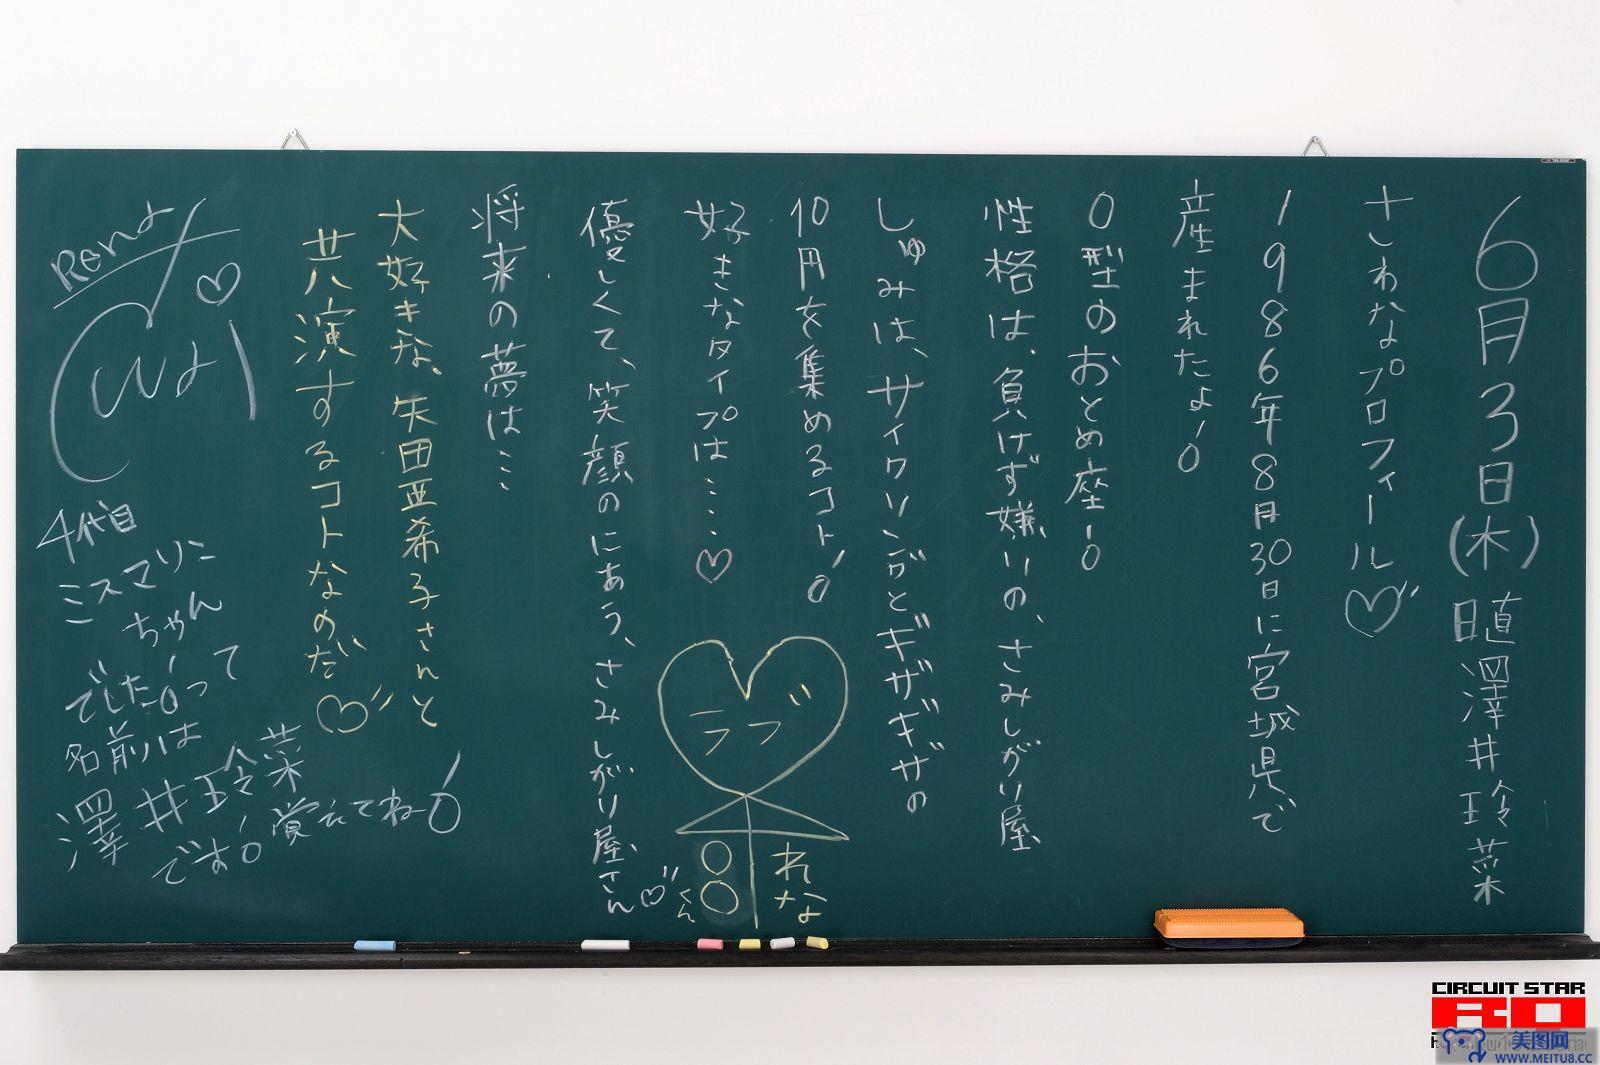 6月3日(木) 日直 澤井玲菜
さわなよプロフィール♡
1986年8月30日に宮城県で
産まれたよ!
O型のおとめ座!
性格は、負けず嫌いの、さみしがり屋、
しゅみは、サイクリングとギザギザの
10円を集めるコト!
好きなタイプは・・・・♡
優しくて、笑顔のにあう、さみしがり屋、さん♡
将来の夢は・・・
大好きな、矢田亜希子さんと
共演するコトなのだ♡
ラブ
ラブ
れな
○○くん
Rena
♡
4代目
ミスマリン
ちゃん
でした!って
名前は
澤井玲菜
です!覚えてねー!
CIRCUIT STAR
RQ
美图网
WWW.MEITU8.CC